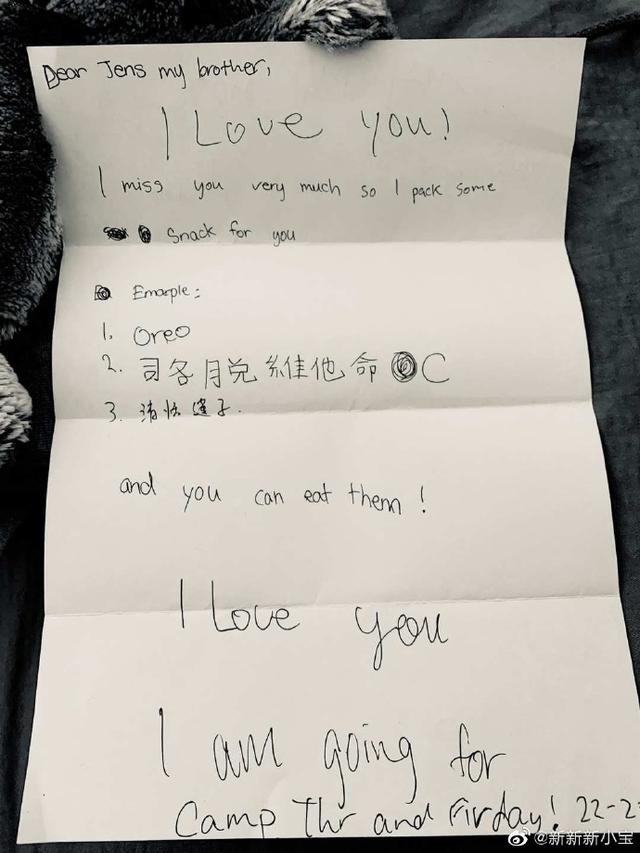 Dear Jens my brother,
I Love you!
I miss you very much so I pack some
Snack for you
Emarple:
1. Oreo
2. 司各月兑維他命 C
3. 清快蓮子.
and you can eat them!
I Love you
I am going for
Camp Thr and Firday! 22-2
@新新新小宝